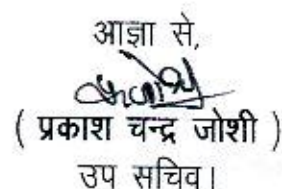 आज्ञा से,
( प्रकाश चन्द्र जोशी )
उप सचिव।